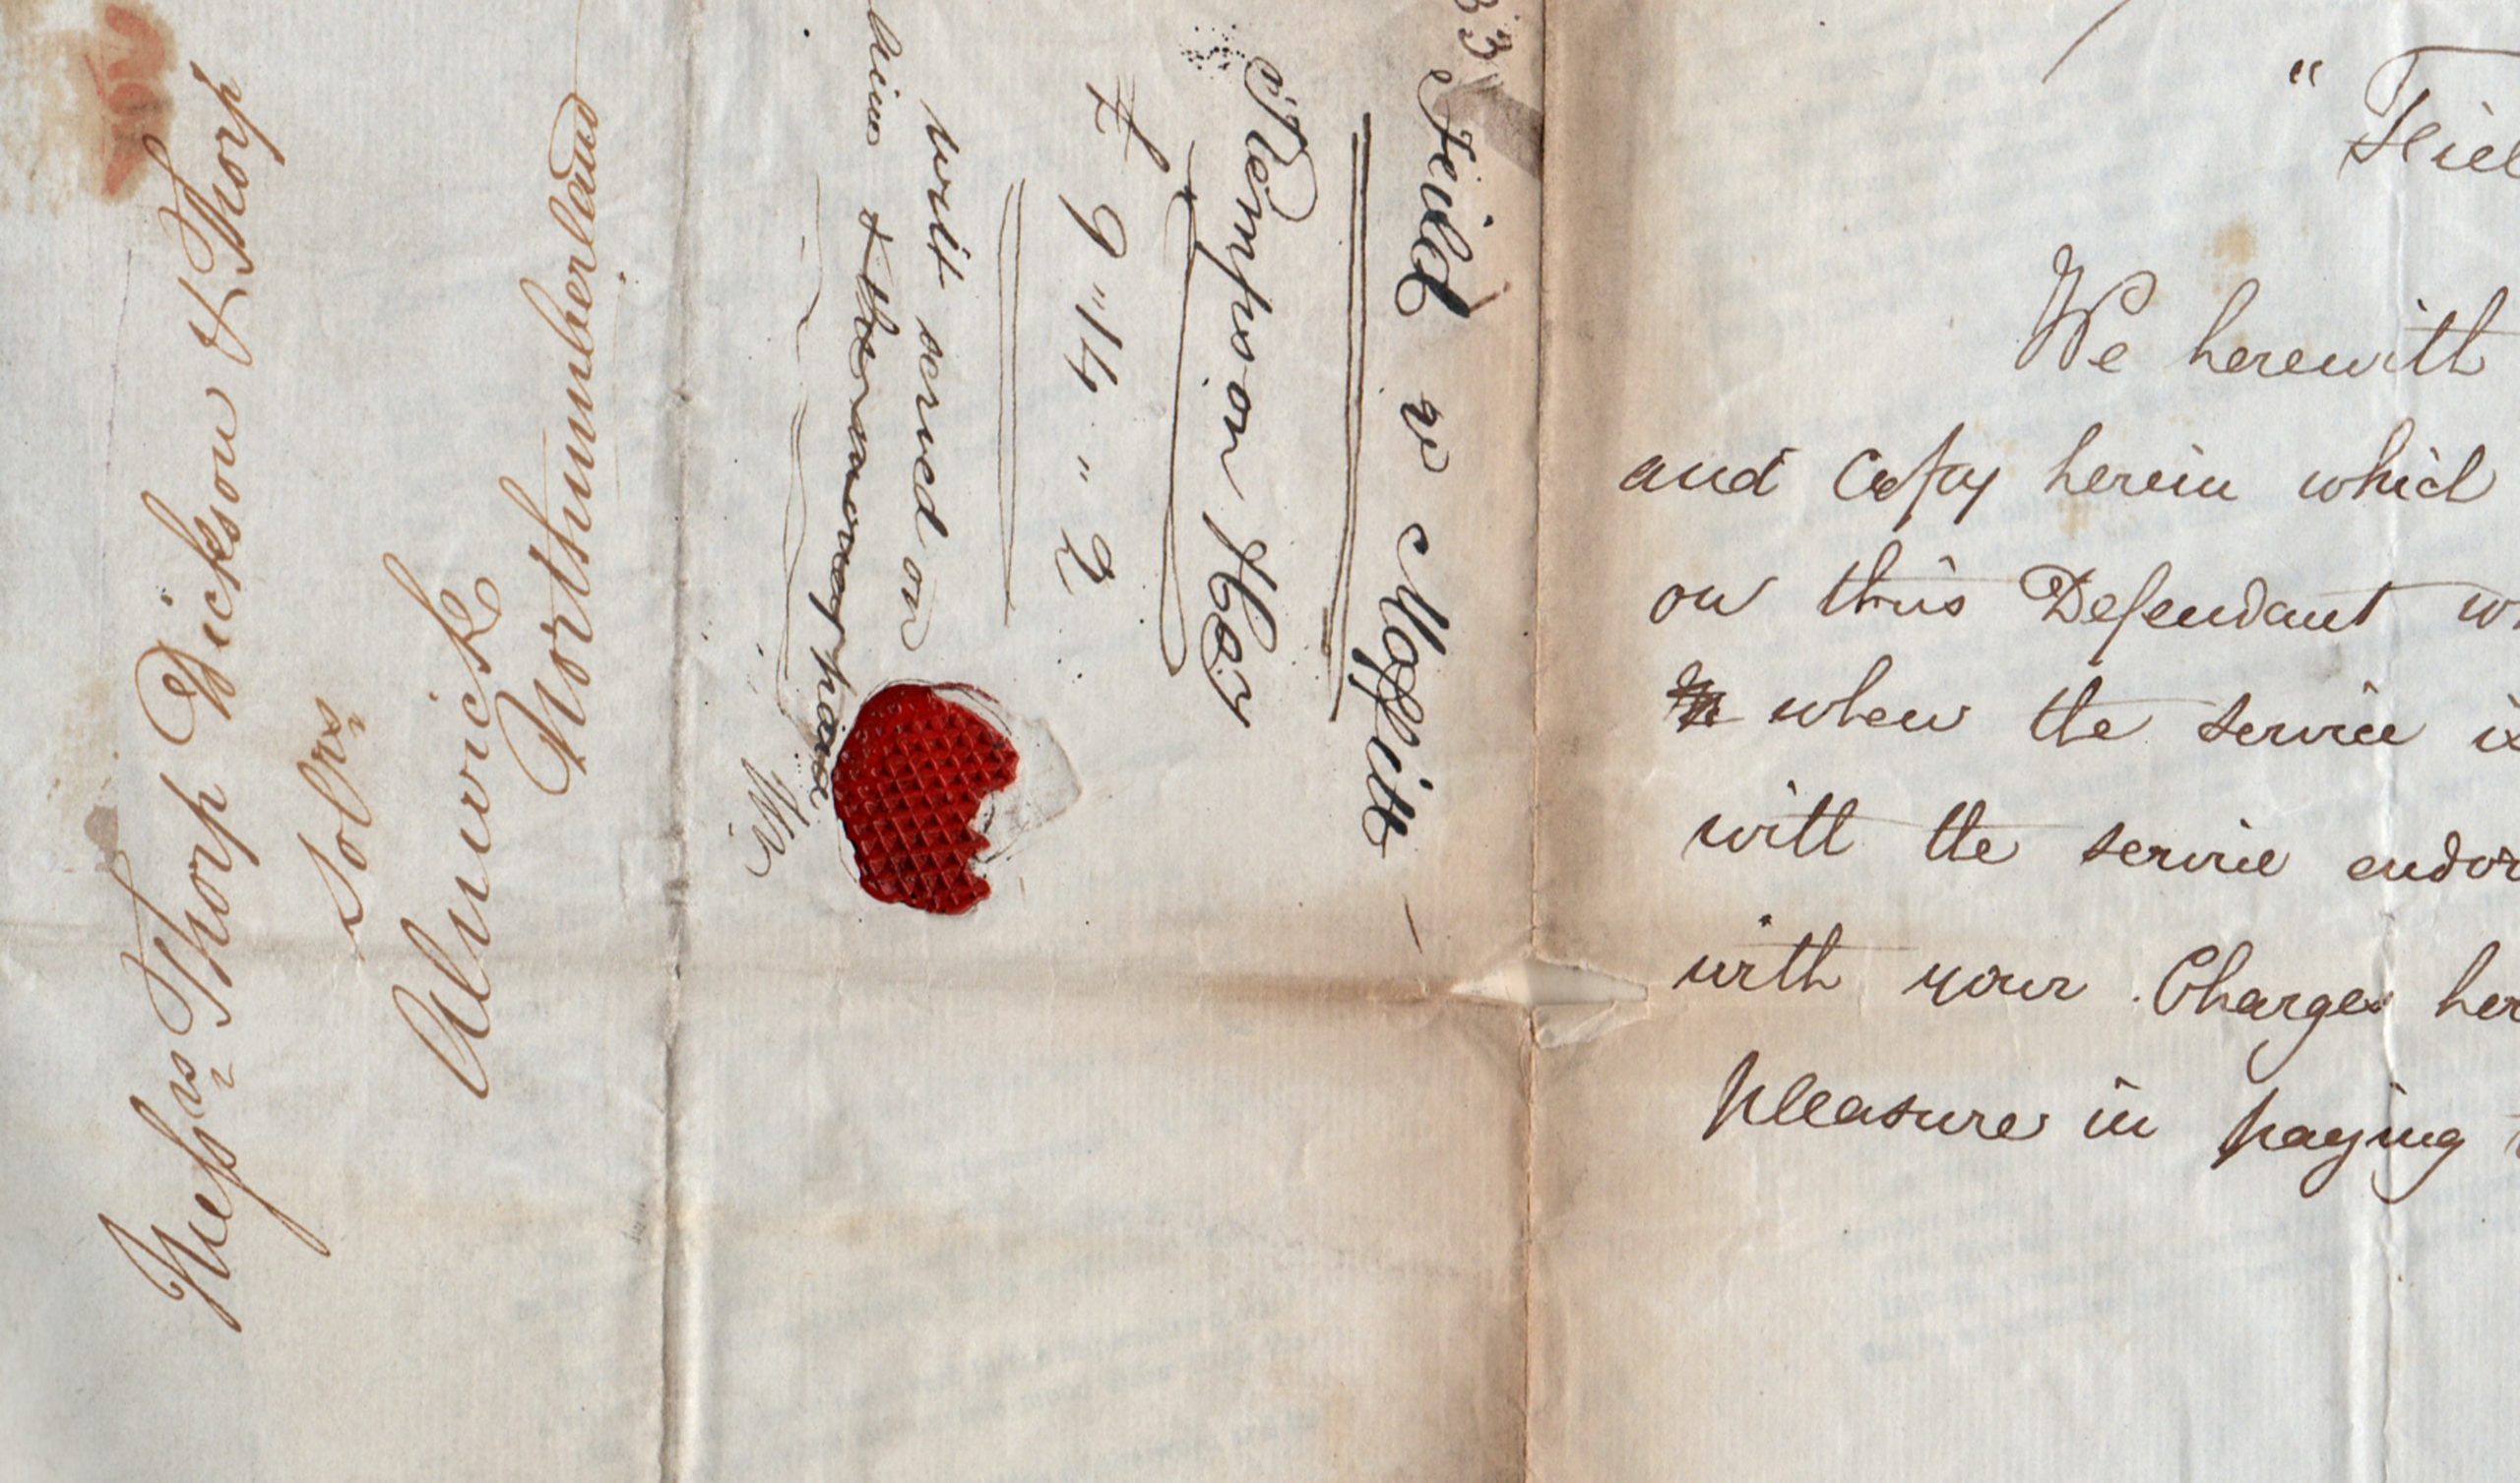 Messrs Thorp Dickson & Thorp
Solrs
Alnwick
Northumberland
33
Feild v Moffitt
Thompson Hay
£ 9 " 14 " 2
writ served on
him & the money paid
" Feil
We herewith
and Copy herein which
on this Defendant w
when the service is
with the service endor
with your Charges her
pleasure in paying